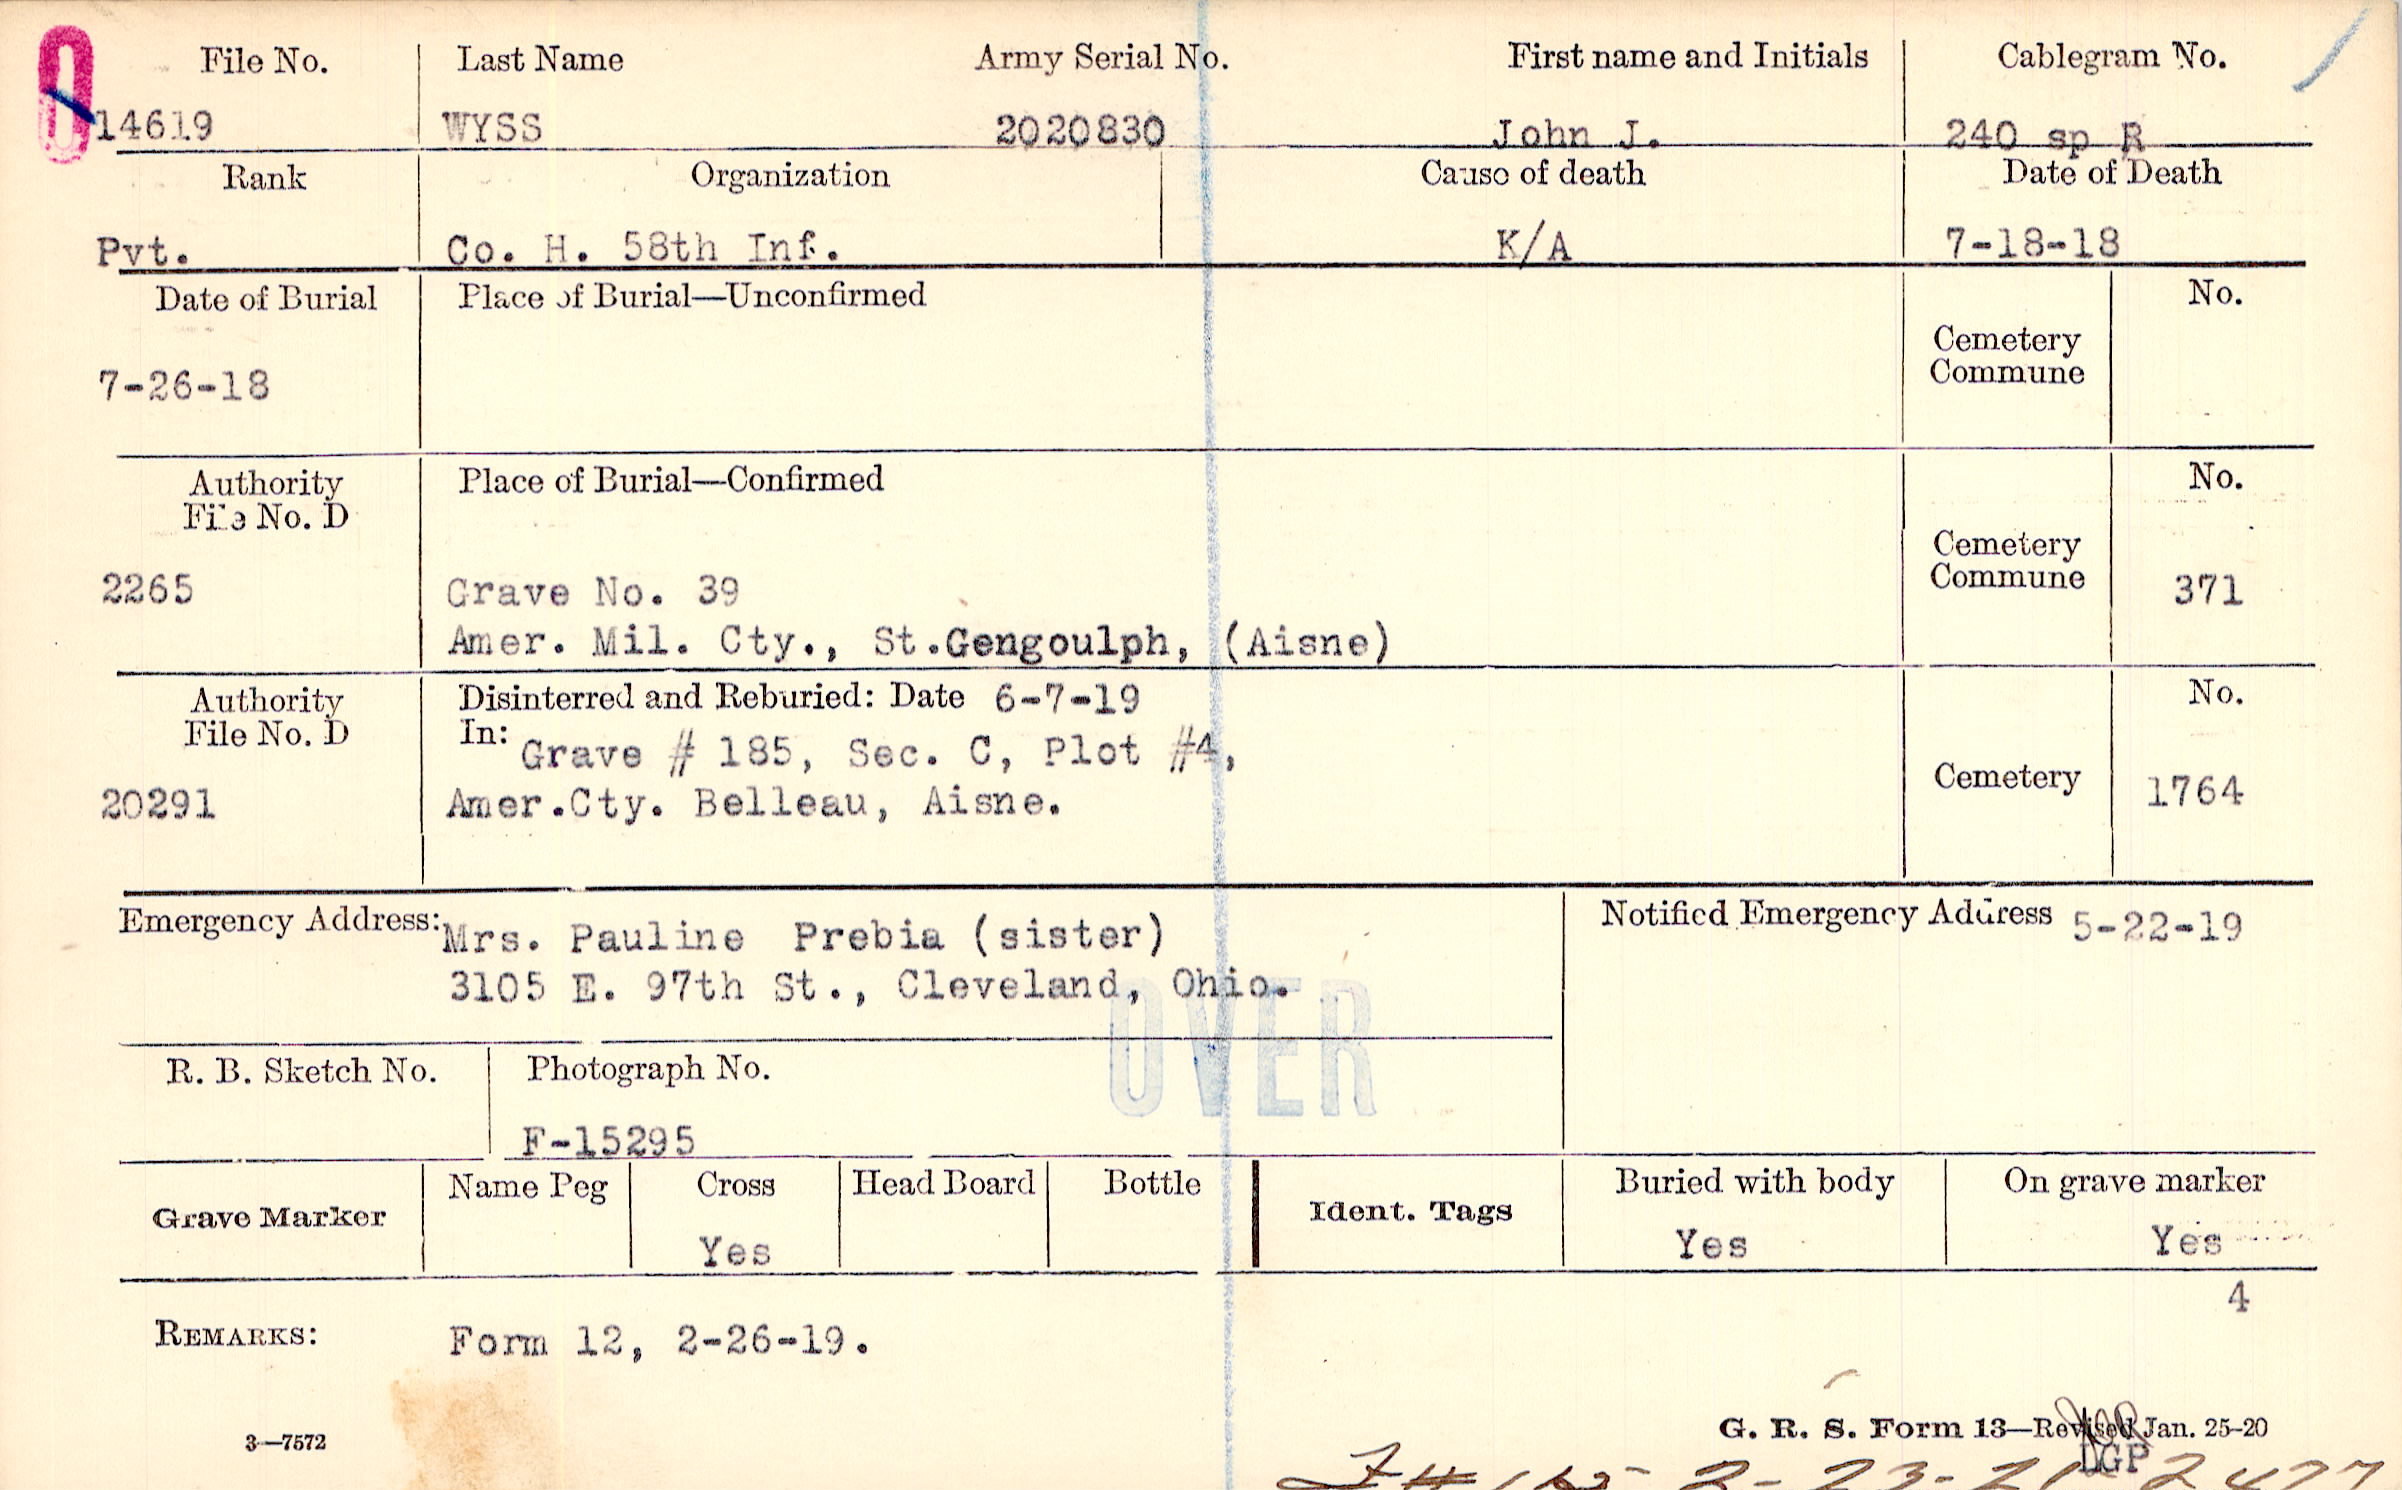 File No. Last Name Army Serial No. First name and Initials Cablegram No.
14619 WYSS 2020830 John J. 240 sp R
Rank Organization Cause of death Date of Death
Pvt. Co. H. 58th Inf. K/A 7-18-18
Date of Burial Place of Burial—Unconfirmed No.
Cemetery
Commune
7-26-18
Authority Place of Burial—Confirmed No.
File No. D
Cemetery
Commune
2265 Grave No. 39 371
Amer. Mil. Cty., St.Gengoulph, (Aisne)
Authority Disinterred and Reburied: Date 6-7-19 No.
File No. D In: Grave # 185, Sec. C, Plot #4,
Cemetery
20291 Amer.Cty. Belleau, Aisne. 1764
Emergency Address: Mrs. Pauline Prebia (sister) Notified Emergency Address 5-22-19
3105 E. 97th St., Cleveland, Ohio.
OVER
R. B. Sketch No. Photograph No.
F-15295
Grave Marker Name Peg Cross Head Board Bottle Ident. Tags Buried with body On grave marker
Yes Yes Yes
4
REMARKS: Form 12, 2-26-19.
3—7572 G. R. S. Form 13—Revised Jan. 25-20
LGP